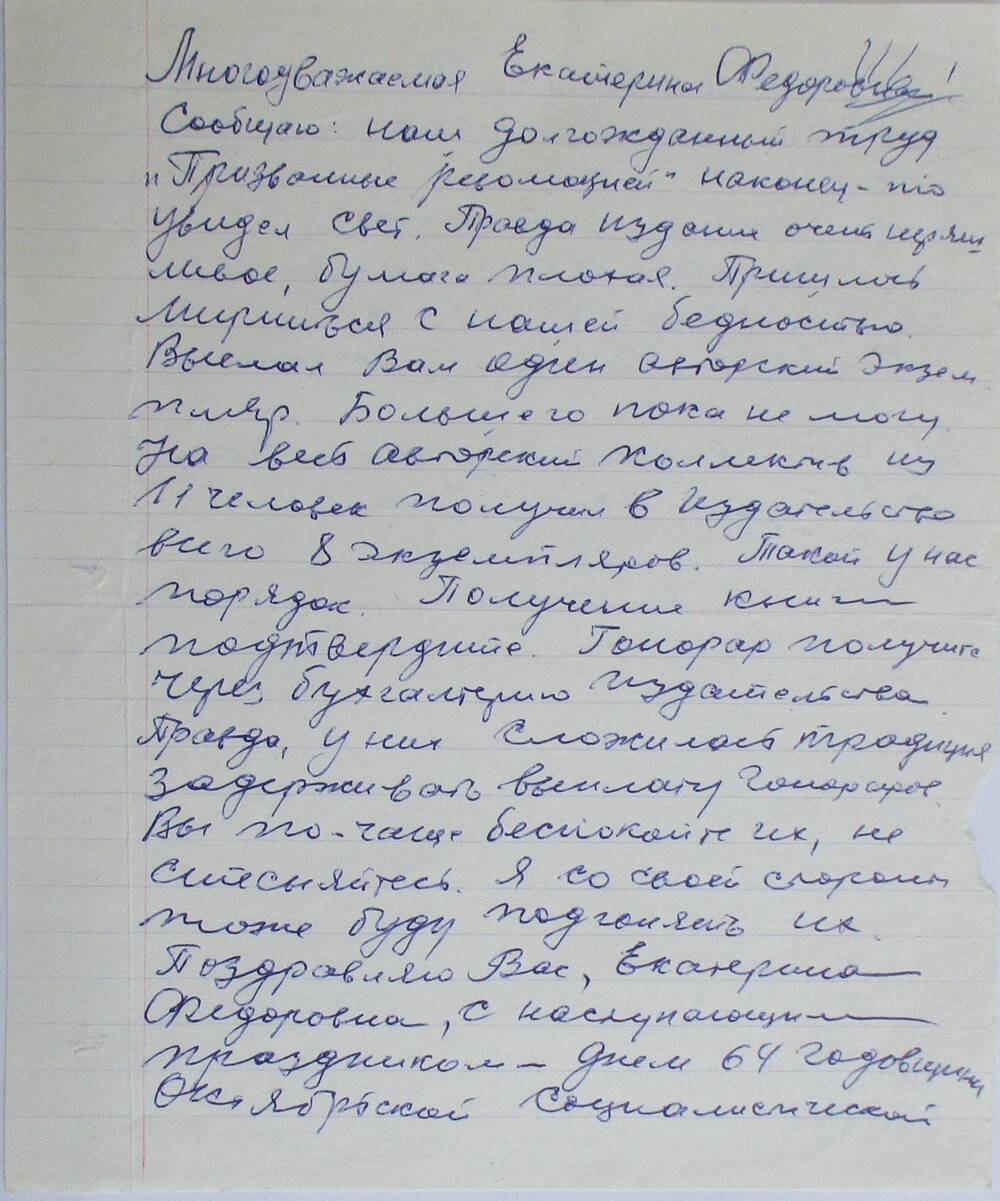 Многоуважаемая Екатерина Федоровна!
Сообщаю: наш долгожданный труд
"Призванные революцией" наконец-то
увидел свет. Правда издание очень неряш-
ливое, бумага плохая. Пришлось
мириться с нашей бедностью.
Выслал Вам один авторский экзем
пляр. Большего пока не могу.
На весь авторский коллектив из
11 человек получил в издательстве
всего 8 экземпляров. Такой у нас
порядок. Получение книги
подтвердите. Гонорар получите
через бухгалтерию издательства.
Правда, у них сложилась традиция
задерживать выплату гонораров.
Вы по-чаще беспокойте их, не
стесняйтесь. Я со своей стороны
тоже буду подгонять их.
Поздравляю Вас, Екатерина
Федоровна, с наступающим
праздником – днем 64 годовщины
Октябрьской социалистической